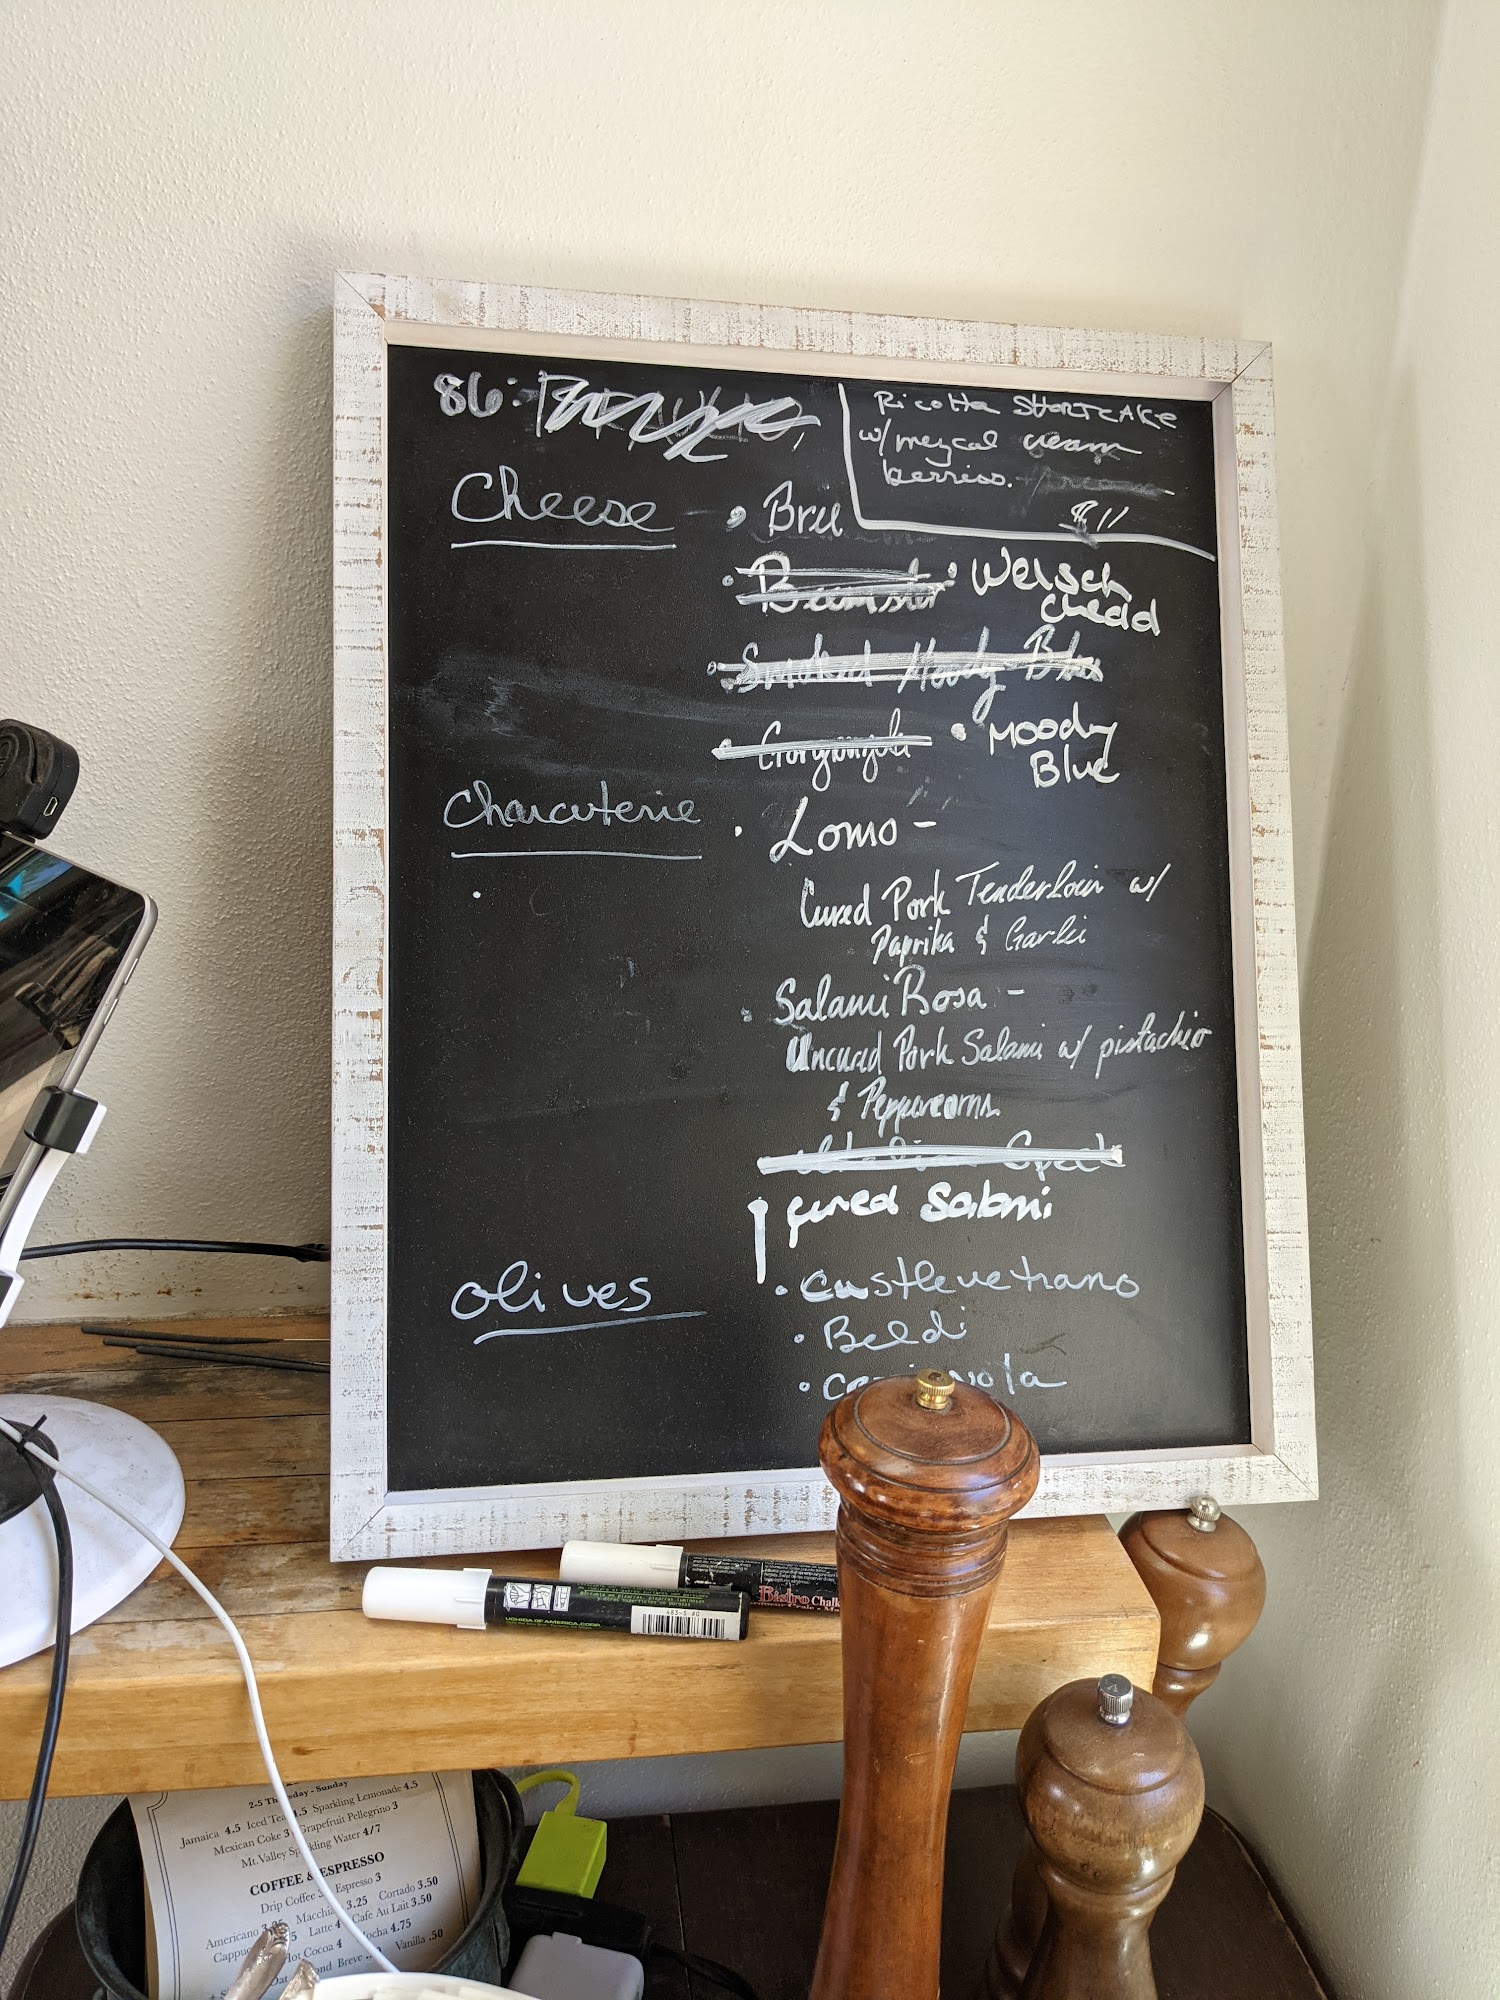 86:
Ricotta SHORTCAKE
w/ mezcal cream
berries.
$11
Cheese
• Brie
• Beemster • Welsch
Chedd
• Smoked Moody Blue
• Gorgonzola • Moody
Blue
Charcuterie
• Lomo -
Cured Pork Tenderloin w/
Paprika & Garlic
• Salami Rosa -
Uncured Pork Salami w/ pistachio
& Peppercorns
cured Salami
Olives
• Castlevetrano
• Beldi
UCHIDA OF AMERICA, CORP.
483-S #0
Bistro Chalk
2-5 Thursday - Sunday
Jamaica 4.5 Iced Tea 4.5 Sparkling Lemonade 4.5
Mexican Coke 3 Grapefruit Pellegrino 3
Mt. Valley Sparkling Water 4/7
COFFEE & ESPRESSO
Drip Coffee Espresso 3
Americano Macchia 3.25 Cortado 3.50
Latte 4 Cafe Au Lait 3.50
Hot Cocoa 4 Mocha 4.75
Breve Vanilla .50